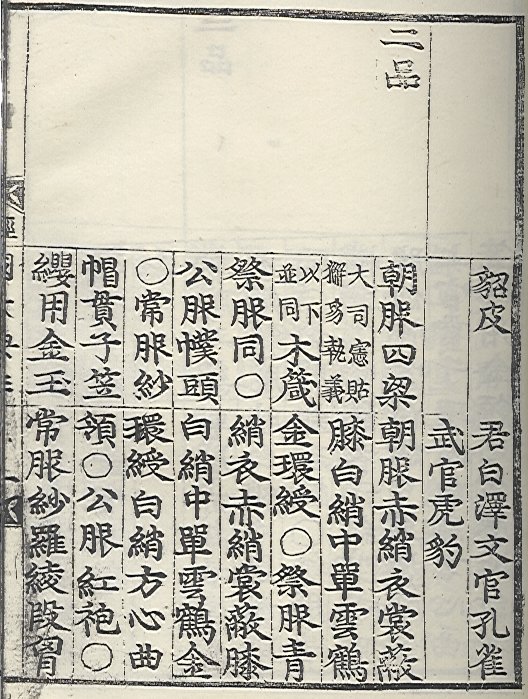 貂皮
君白澤文官孔雀
武官虎豹
二品
朝服四梁
大司憲貼
獬豸執義
以下
並同
木箴
祭服同○
公服幞頭
○常服紗
帽貫子笠
纓用金玉
朝服赤綃衣裳蔽
膝白綃中單雲鶴
金環綬○祭服青
綃衣赤綃裳蔽膝
白綃中單雲鶴金
環綬白綃方心曲
領○公服紅袍○
常服紗羅綾段胷